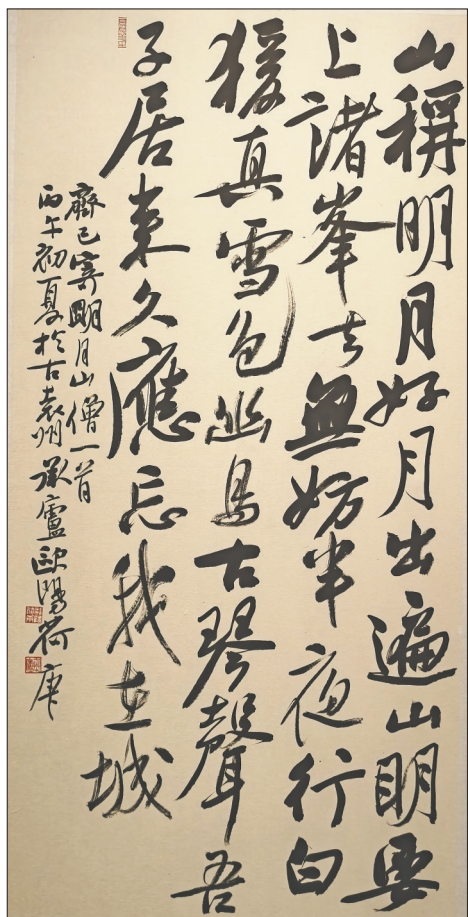 山稱明月好月出遍山明要
上諸峯去無妨半夜行白
猨真雪色幽鳥古琴聲吾
子居來久應忘我在城
齊己寄明月山僧一首
丙午初夏於古袁州承廬歐陽荷庚